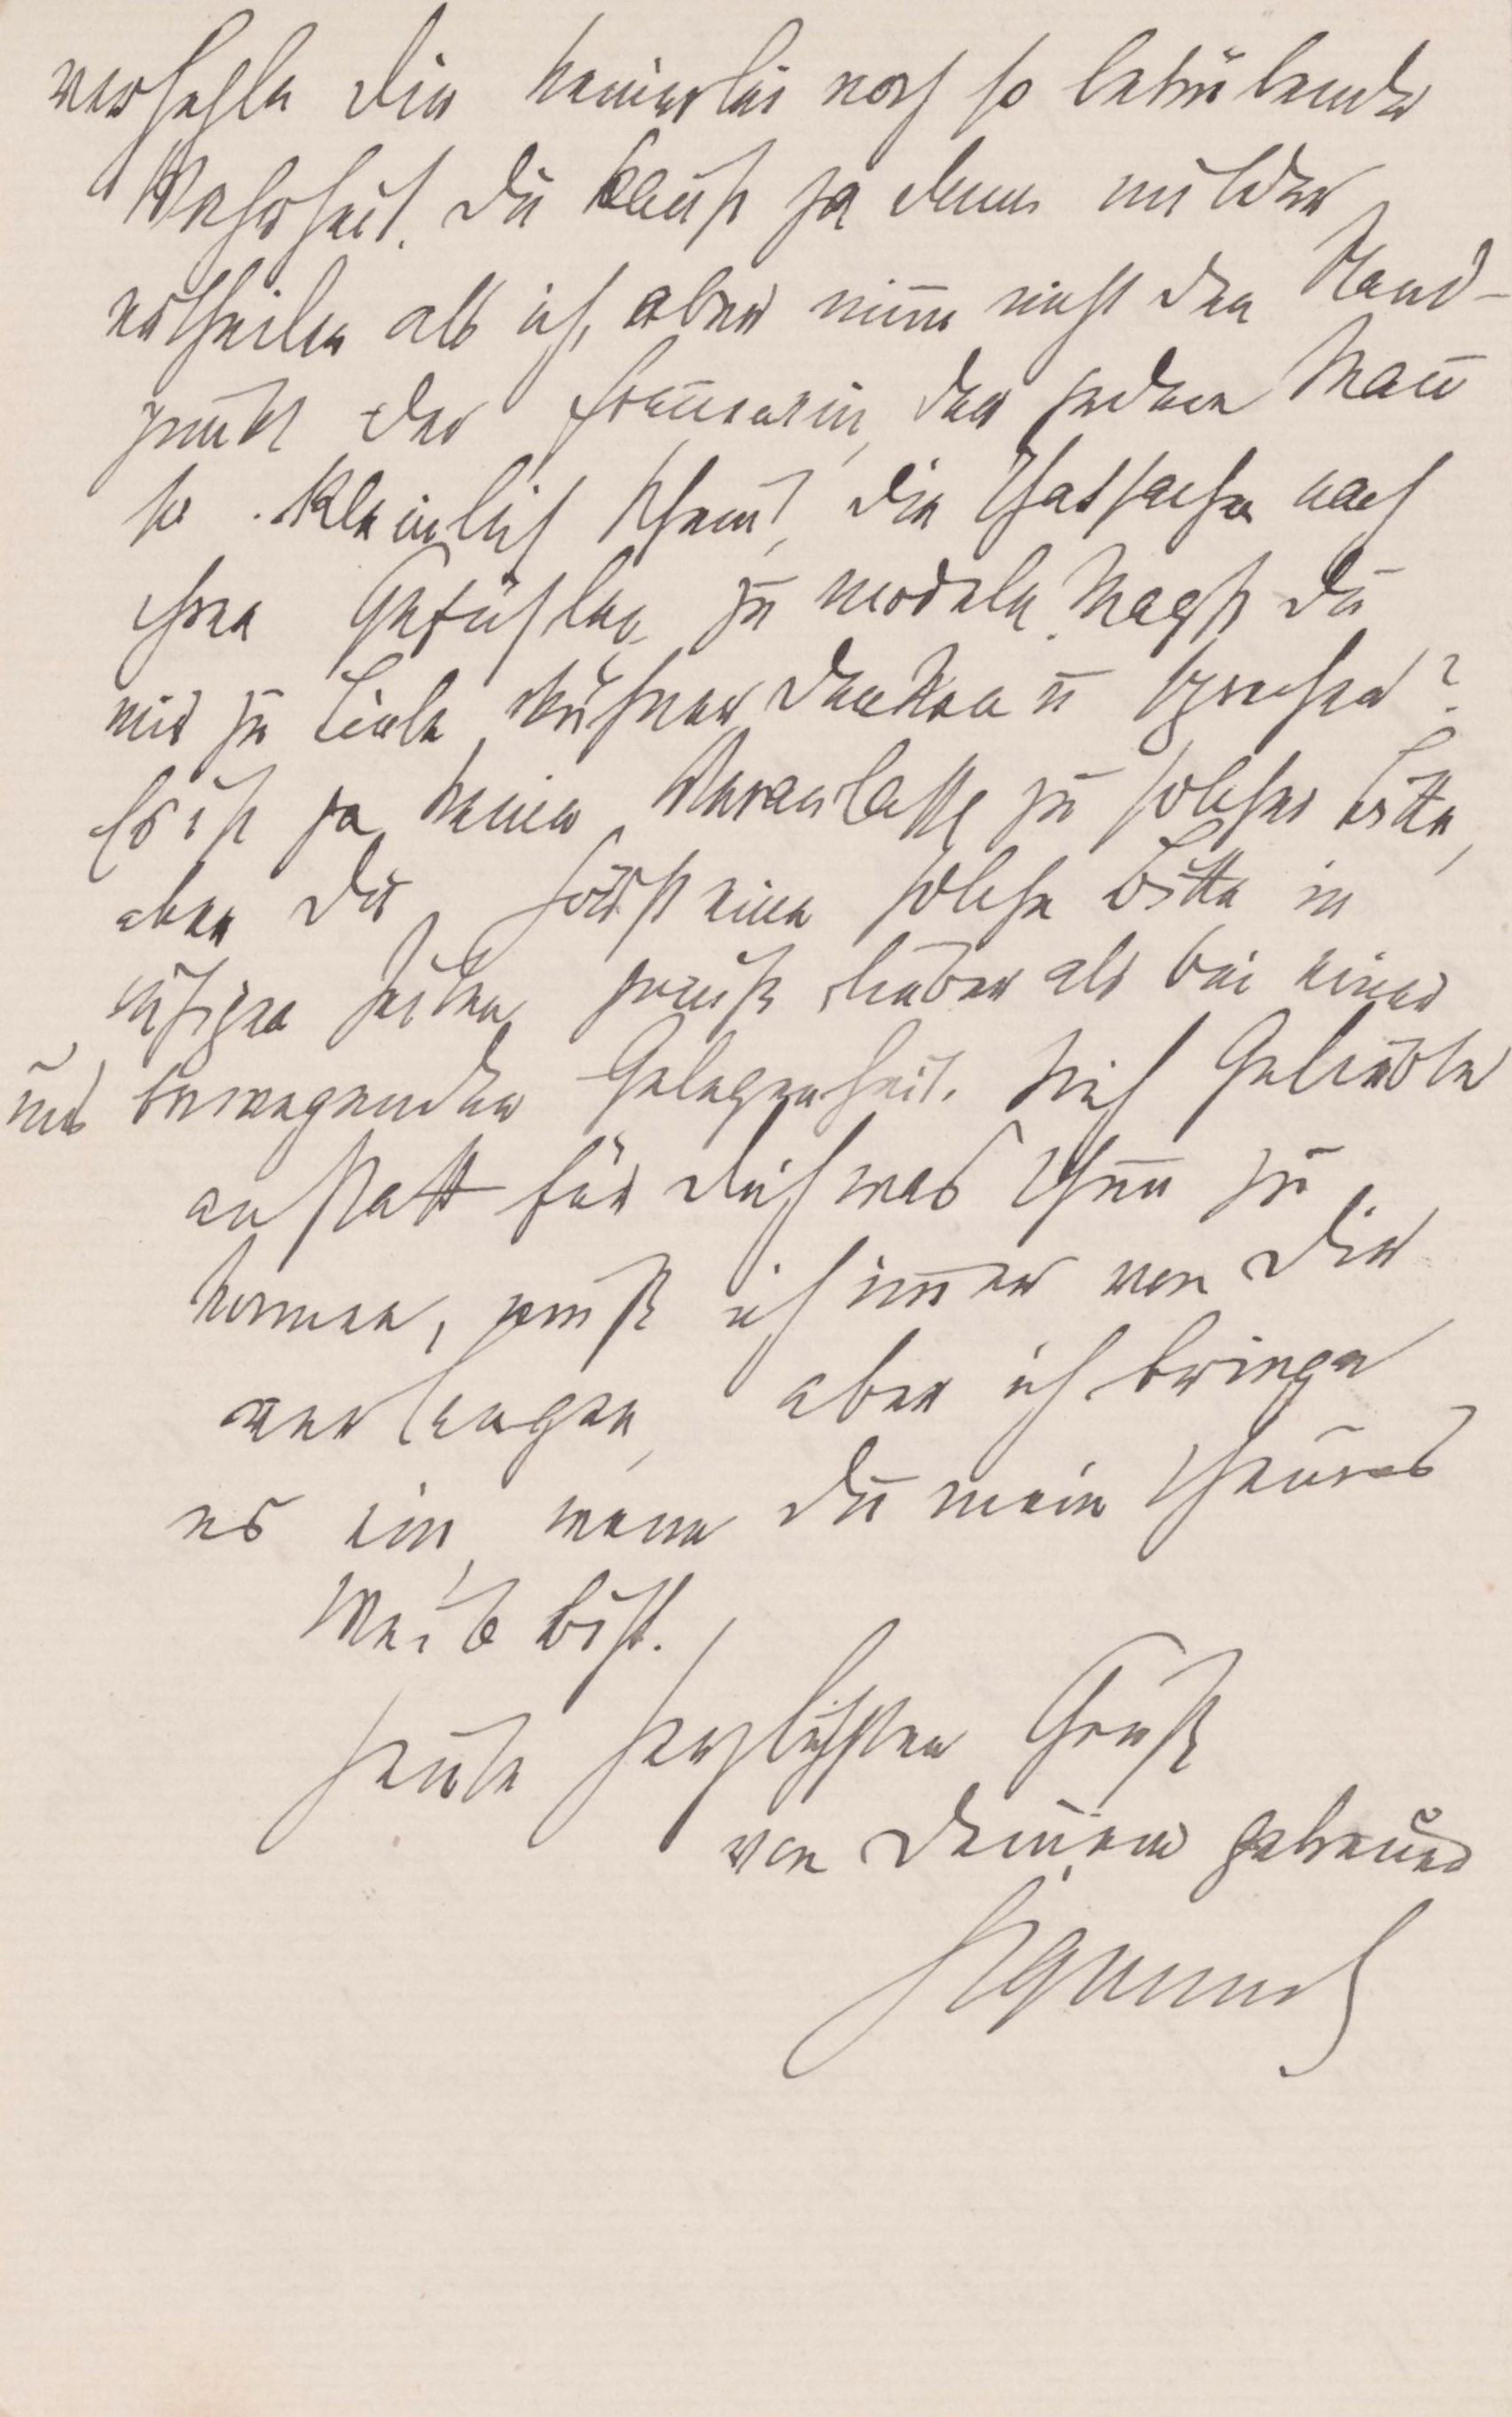 verhehle Dir keinerlei noch so betrübende
Wahrheit. Du kannst ja denn milder
urtheilen als ich, aber nimm nicht den Stand-
punkt der Frauen ein, der jedem Mañ
so kleinlich scheint, die Thatsachen nach
ihren Gefühlen zu modeln. Magst Du
mir zu Liebe kühner denken u sprechen?
Es ist ja keine zu solcher Bitte,
aber Du hörst eine solche Bitte in
ruhigen Zeiten gewiß lieber als bei einer
uns bewegenden Gelegenheit. Sieh Geliebte
anstatt für Dich was thun zu
können, muß ich im̄er von Dir
verlangen, aber ich bringe
es ein, wenn Du mein theures
Weib bist.
Heute herzlichsten Gruß
von Deinem getreuen
Sigmund